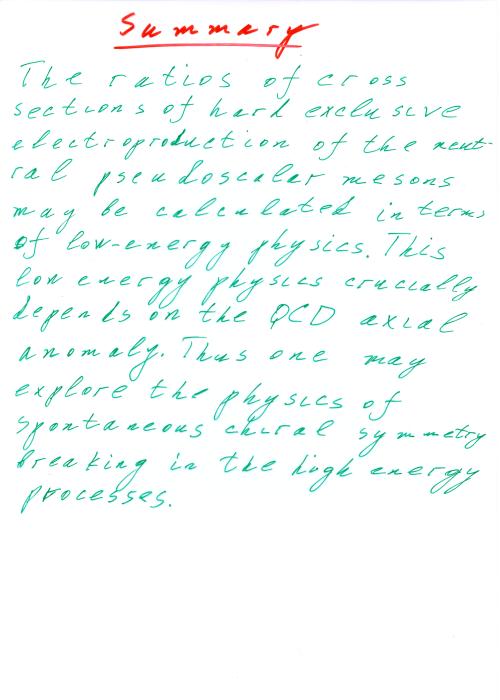 Summary
The ratios of cross
sections of hard exclusive
electroproduction of the neut-
ral pseudoscalar mesons
may be calculated in terms
of low-energy physics. This
low energy physics crucially
depends on the QCD axial
anomaly. Thus one may
explore the physics of
spontaneous chiral symmetry
breaking in the high energy
processes.